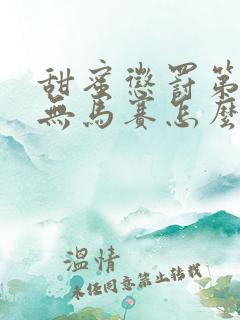 甜蜜懲罰第
無馬賽怎麼
溫情
未任同意禁止转载